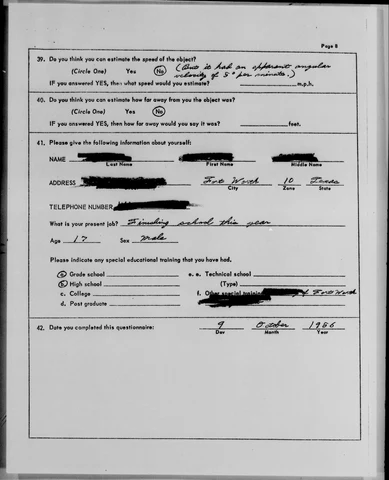 Page 8
39. Do you think you can estimate the speed of the object?
(Circle One) Yes No
(But it had an apparent angular
velocity of 5° per minute.)
IF you answered YES, then what speed would you estimate? m.p.h.
40. Do you think you can estimate how far away from you the object was?
(Circle One) Yes No
IF you answered YES, then how far away would you say it was? feet.
41. Please give the following information about yourself:
NAME
Last Name First Name Middle Name
ADDRESS Fort Worth 10 Texas
Street City Zone State
TELEPHONE NUMBER
What is your present job? Finishing school this year
Age 17 Sex Male
Please indicate any special educational training that you have had.
a. Grade school e. Technical school
b. High school (Type)
c. College f. Other special training of Fort Worth
d. Post graduate
42. Date you completed this questionnaire: 9 October 1956
Day Month Year